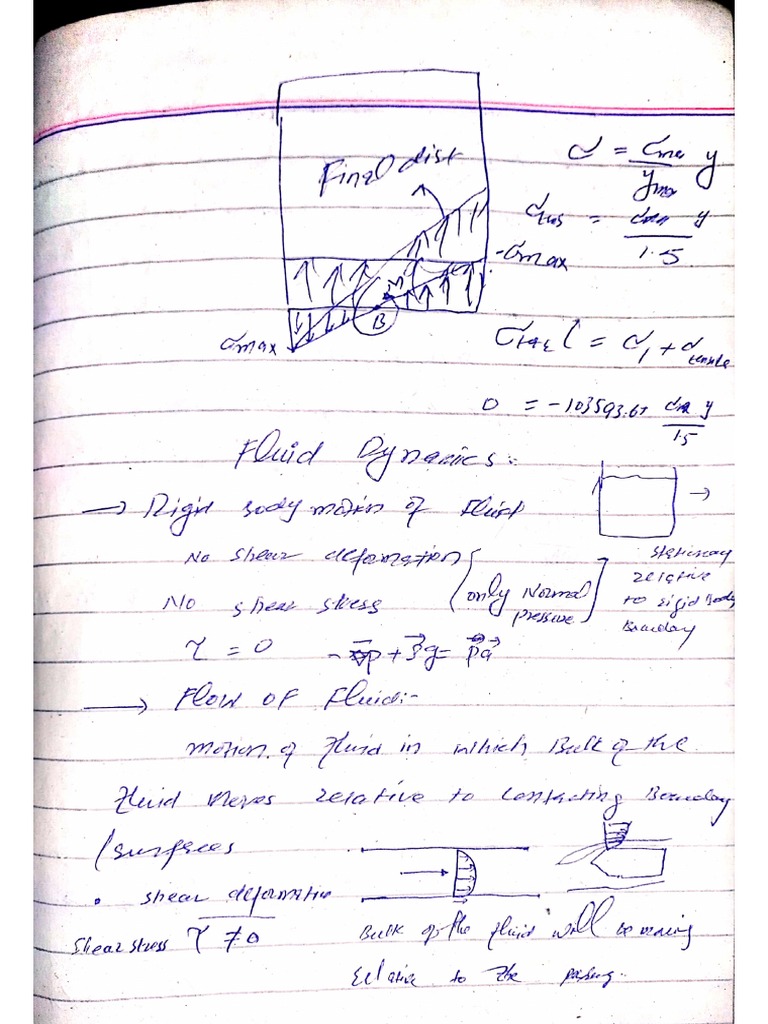 Final dist
σ = σmax/ymax y
σtens = σmax/1.5 y
-σmax
B
σmax
σtotal = σ1 + σtensile
0 = -103593.67 σmax/1.5 y
Fluid Dynamics:
→ Rigid body motion of Fluid →
No shear deformation
No shear stress (only Normal pressure)
stationary
relative
to rigid Body
Boundary
τ = 0 -∇p + ρg = ρa
→ Flow of Fluid:-
motion of fluid in which Bulk of the
fluid moves relative to contacting Boundary
/surfaces
• shear deformation
Shear stress τ ≠ 0
Bulk of the fluid will be moving
relative to the